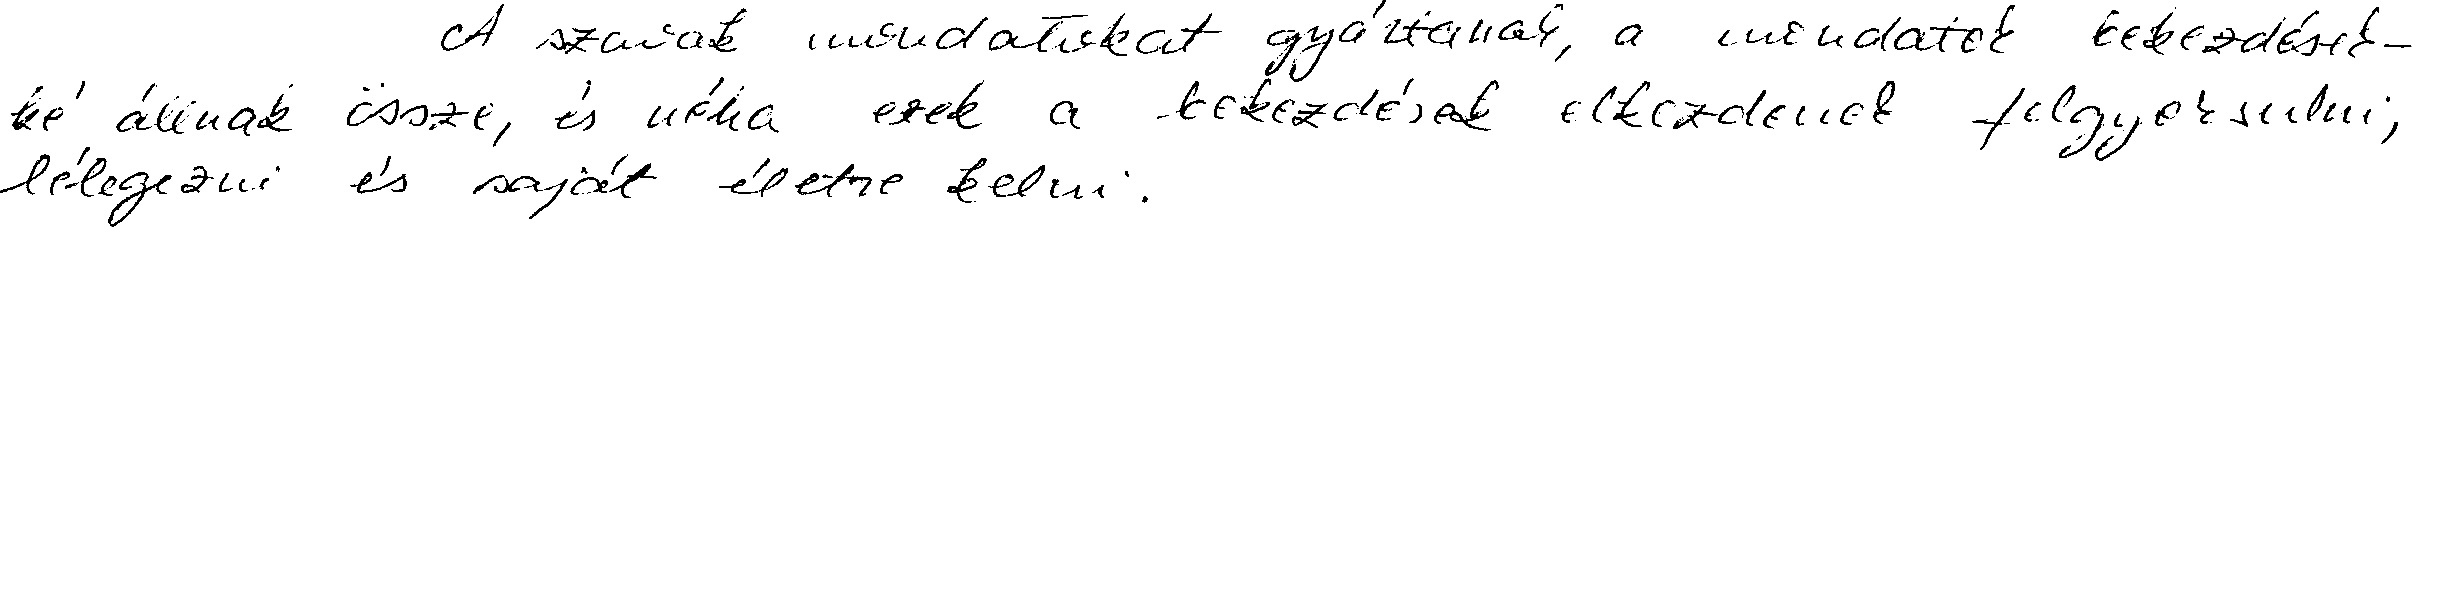 A szavak mondatokat gyártanak, a mondatok bekezdések-
ké állnak össze, és néha ezek a bekezdések elkezdenek felgyorsulni,
lélegezni és saját életre kelni.